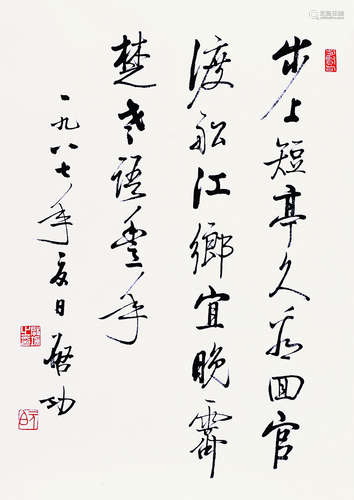 步上短亭久看回官
渡船江鄉宜晚霽
楚老語豐年
一九八七年夏日啟功